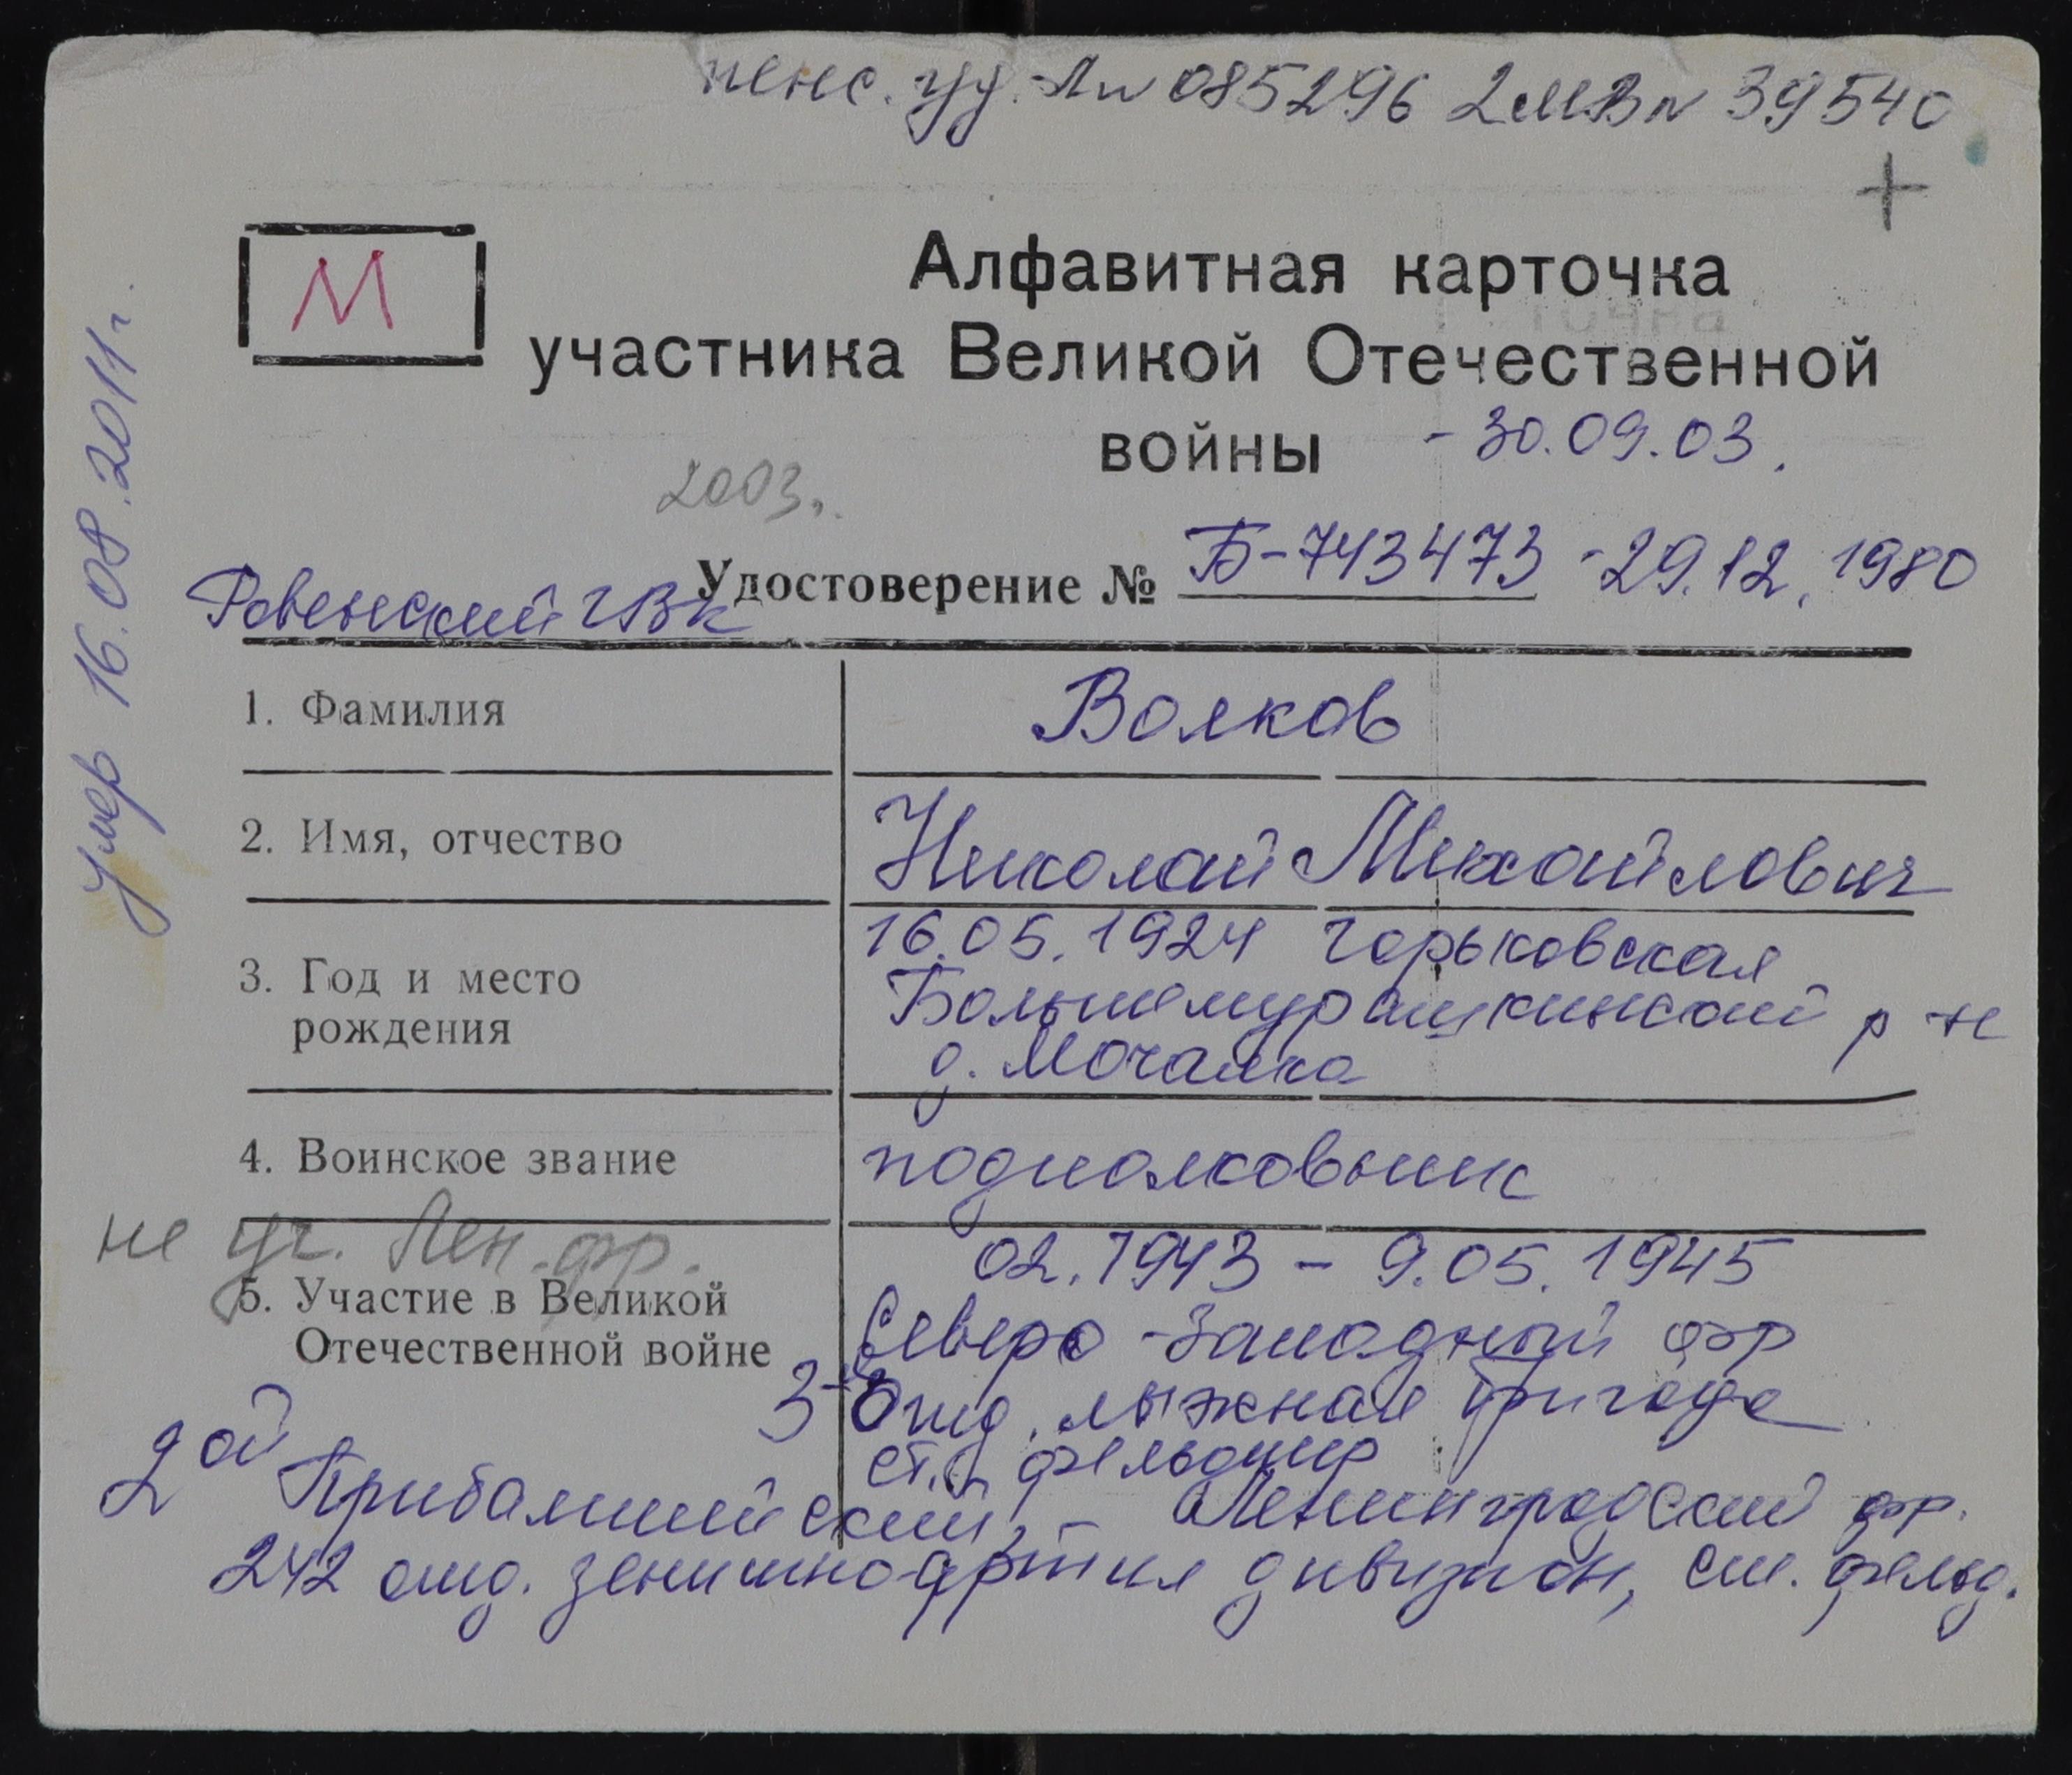 пенс. уд. Ап 085296 2МВ№ 39540
+
М
Алфавитная карточка
участника Великой Отечественной
войны - 30.09.03.
2003г.
Удостоверение № Б-743473 - 29.12.1980
Ровенский ГВК
Умер 16.08.2011г.
1. Фамилия Волков
2. Имя, отчество Николай Михайлович
3. Год и место
рождения
16.05.1924 Горьковская
Большемурашкинский р-н
д. Мочалка
4. Воинское звание подполковник
не уч. Лен. фр.
5. Участие в Великой
Отечественной войне
02.1943 - 9.05.1945
Северо-Западный фр
3-я отд. лыжная бригада
ст. фельдшер
2ой Прибалтийский, - Ленинградский фр.
242 отд. зенитно-артил дивизион, ст. фельд.